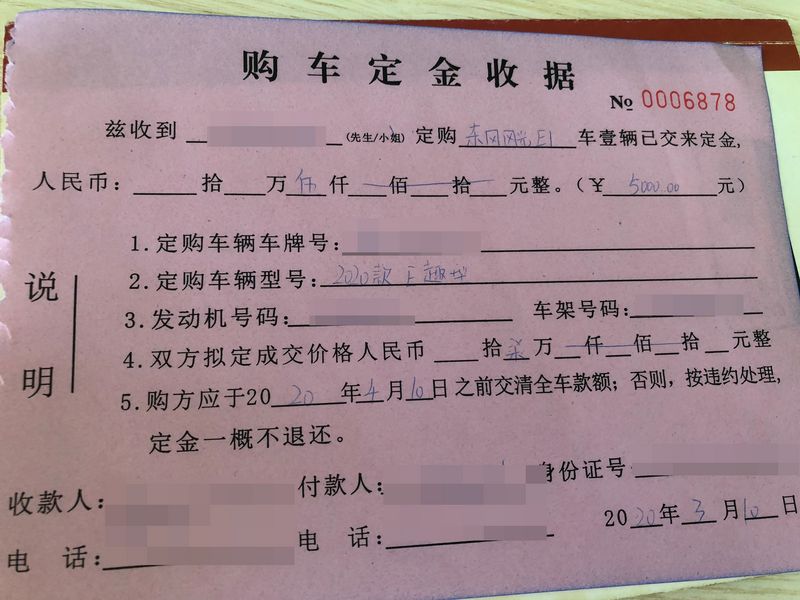 购车定金收据
№ 0006878
兹收到 (先生/小姐) 定购 东风风光E1 车壹辆已交来定金,
人民币: 拾 万 伍 仟 佰 拾 元整。(¥ 5000.00 元)
说明
1.定购车辆车牌号:
2.定购车辆型号: 2020款 E趣型
3.发动机号码: 车架号码:
4.双方拟定成交价格人民币 拾 柒 万 仟 佰 拾 元整
5.购方应于2020年4月10日之前交清全车款额;否则,按违约处理,
定金一概不退还。
收款人: 付款人: 身份证号
电 话: 电 话: 2020年3月10日